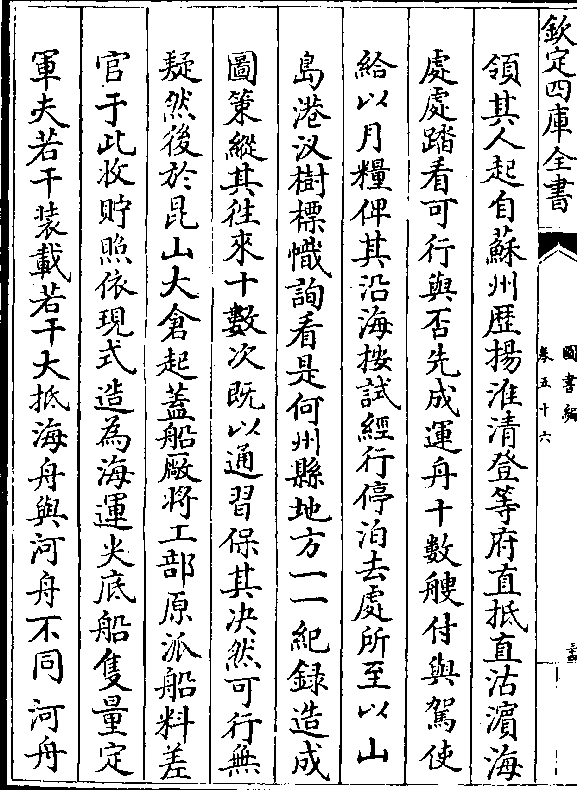 欽定四庫全書
圖書編
卷五十六
領其人起自蘇州歷揚淮清登等府直抵直沽濵海
處處踏看可行與否先成運舟十數艘付與駕使
給以月糧俾其沿海按試經行停泊去處所至以山
島港汊樹標幟詢看是何州縣地方一一紀録造成
圖策縱其往來十數次既以通習保其决然可行無
疑然後於昆山大倉起蓋船廠将工部原派船料差
官于此收貯照依現式造為海運尖底船隻量定
軍夫若干装載若干大抵海舟與河舟不同河舟